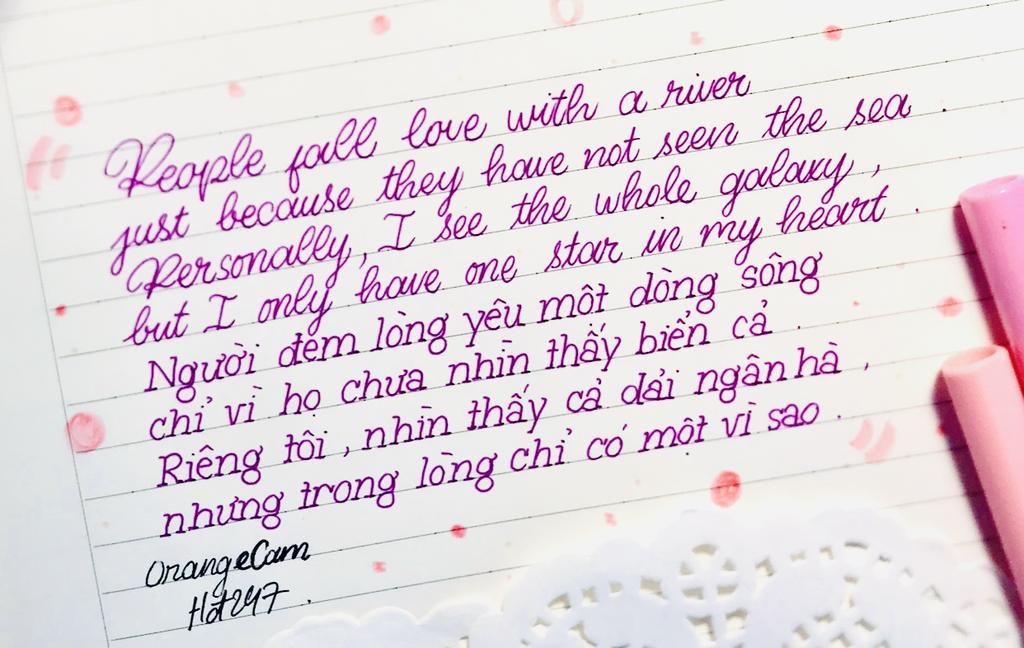 People fall love with a river
just because they have not seen the sea.
Personally, I see the whole galaxy,
but I only have one star in my heart.
Người đem lòng yêu một dòng sông
chỉ vì họ chưa nhìn thấy biển cả.
Riêng tôi, nhìn thấy cả dải ngân hà,
nhưng trong lòng chỉ có một vì sao.
OrangeCam
Hot247.